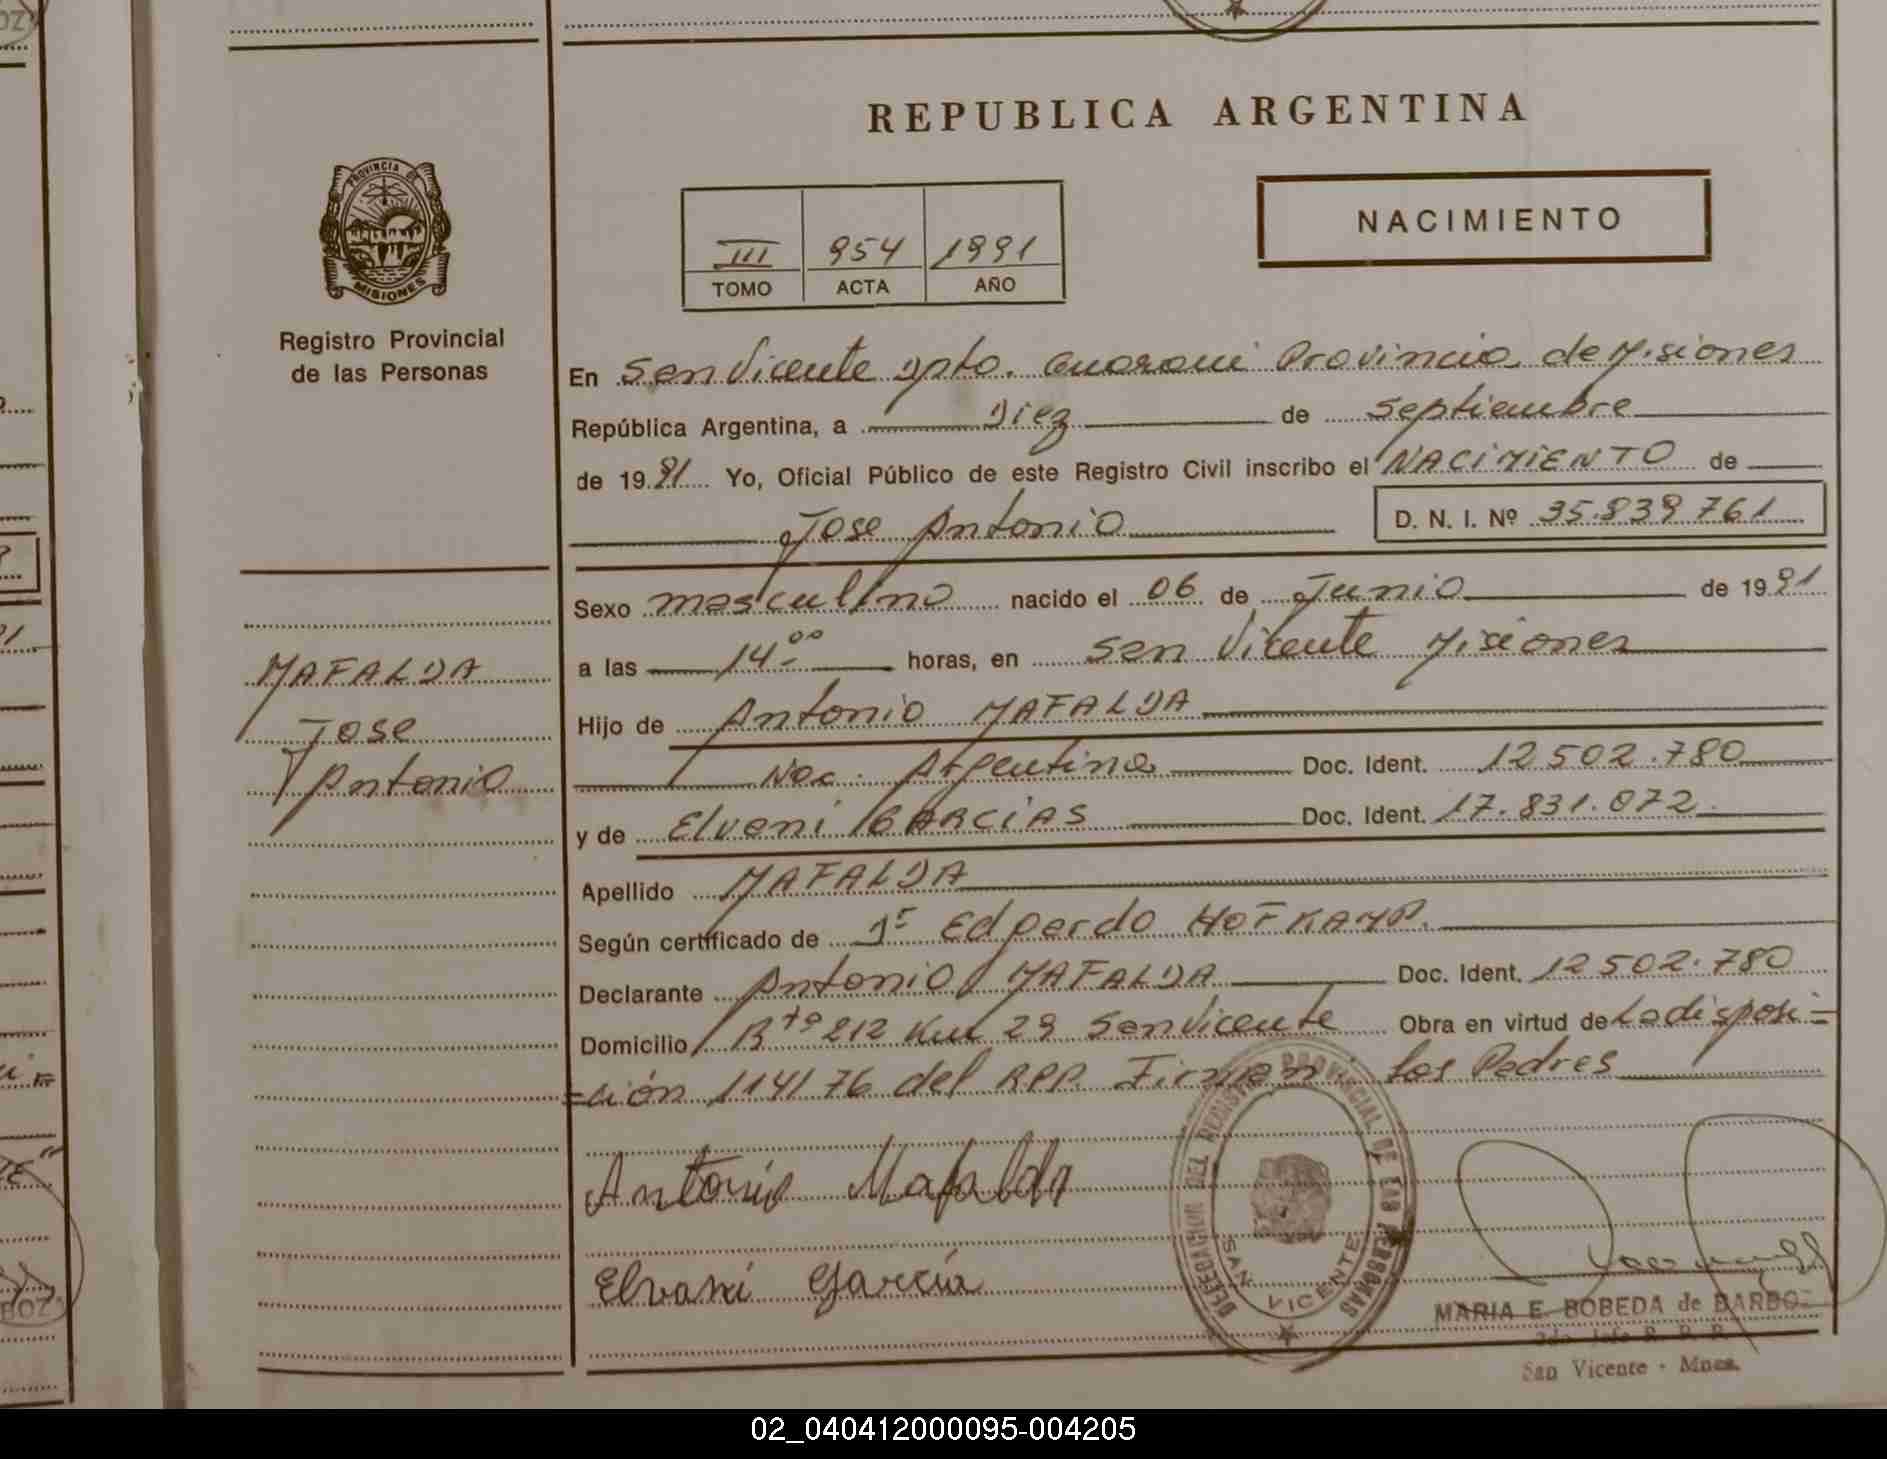 REPUBLICA ARGENTINA
PROVINCIA DE
MISIONES
Registro Provincial
de las Personas
NACIMIENTO
III 954 1991
TOMO ACTA AÑO
En San Vicente Dpto. Guarani Provincia de Misiones
República Argentina, a Diez de septiembre
de 1991 Yo, Oficial Público de este Registro Civil inscribo el NACIMIENTO de
Jose Antonio D. N. I. Nº 35.839.761
Sexo masculino nacido el 06 de Junio de 1991
a las 14.00 horas, en San Vicente Misiones
Hijo de Antonio MAFALDA
Nac. Argentina Doc. Ident. 12502.780
y de Elvani GARCIAS Doc. Ident. 17.831.072.
Apellido MAFALDA
Según certificado de Edgardo HOFKAMP.
Declarante Antonio MAFALDA Doc. Ident. 12502.780
Domicilio Rta 212 Km 29 San Vicente Obra en virtud de La disposi=
=ción 114/76 del RPP. Firman los Padres
MAFALDA
Jose
Antonio
Antonio Mafalda
Elvani Garcia
DELEGACION DEL REGISTRO PROVINCIAL DE LAS PERSONAS
SAN VICENTE
MARIA E. BOBEDA de BARBOZ
2do Jefe R. P. P.
San Vicente - Mnes.
02_040412000095-004205